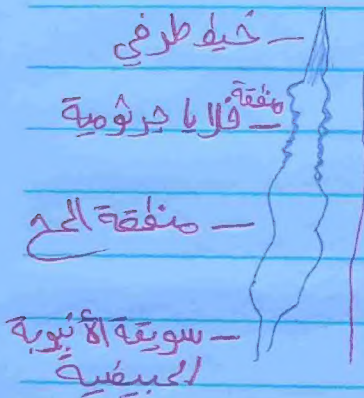 خيط طرفي
منطقة خلايا جرثومية
منطقة المح
سويقة الأنبوبة
المبيضية